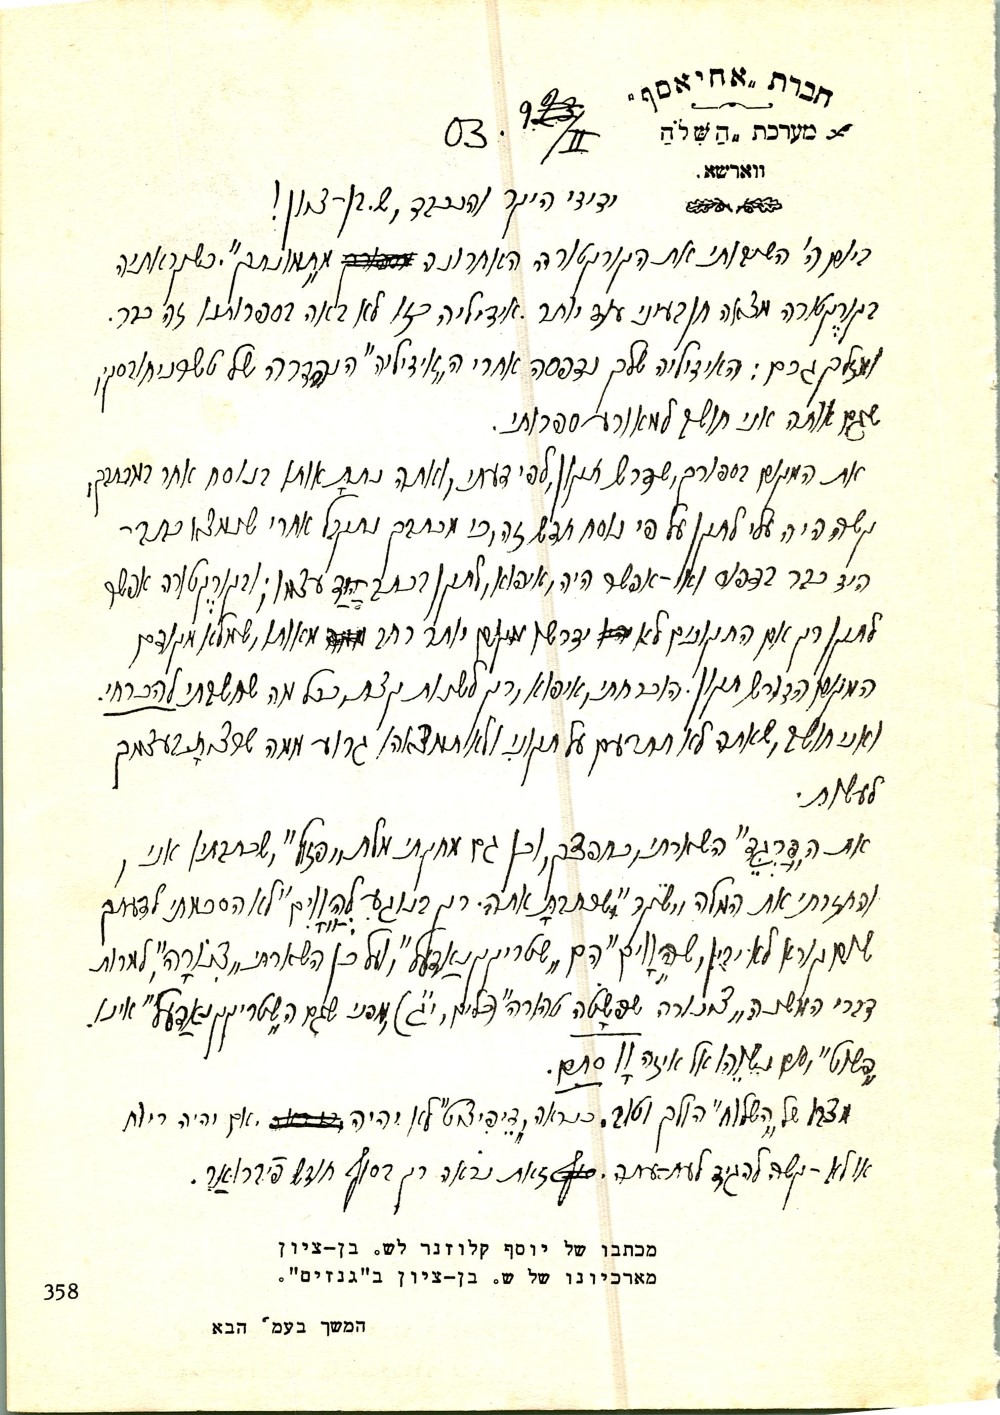 חברת „אחיאסף"
מערכת „הַשִּׁלֹחַ
ווארשא.
9 /II. 03
ידידי היקר והנכבד, ש. בן-ציון!
ביום ה' השיבותי את הקורקטורה האחרונה מ„מכתבך". כשקראתיה
בקורקטורה מצאה חן בעיני עוד יותר. אידיליה כזו לא באה בספרותנו זה כבר.
ומזלך גרם: האידיליה שלך נדפסה אחרי ה„אידיליה" הנהדרה של טשרניחובסקי,
שגם אותה אני חושב למאורע ספרותי.
את המקום בספורך, שדרש תקון, לפי דעתי, ואתה נתתָ אותו בנוסח אחר במכתבך,
קשה היה עלי לתקן על פי נוסח חדש זה, כי מכתבך נתקבל אחרי שנמצא כתב-
היד כבר בדפוס ואי-אפשר היה, איפוא, לתקן בכתב-היד עצמו; ובקורקטורה אפשר
לתקן רק אם התקונים לא ידרשו מקום יותר רחב מאותו, שמלא מקודם
המקום הדורש תקון. הוכרחתי, איפוא, רק לשנות קצת, ככל מה שחשבתי להכרחי.
ואני חושב, שאתה לא תתרעם על תקוני ולא תמצאהו גרוע ממה שרצית בעצמך
לעשות.
את ה„פרגוד" השארתי, כחפצך, וכן גם מחקתי מלת שכתבתי אני,
והחזרתי את המלה שכתבתָ אתה. רק בנוגע ל„הווים" לא הסכמתי לדעתך
שום קורא לא יבין, ש„הווים" הם „שטריקנאַדעל", ועל כן השארתי „צִנורה", למרות
דברי המשנה „צנורה שפשטה טהורה" (כלים, י"ג), מפני שגם ה„שטריקנאַדעל" אינו
„פשוט", אם נשוהו אל איזה וָו סתם.
מצבו של „השלוח" הולך וטוב. כנראה, „דיפיציט" לא יהיה. אם יהיה ריוח
או לא – קשה להגיד לעת-עתה. זאת נראה רק בסוף חודש פֿיברואר.
מכתבו של יוסף קלוזנר לש. בן-ציון
מארכיונו של ש. בן-ציון ב"גנזים".
358
המשך בעמ' הבא